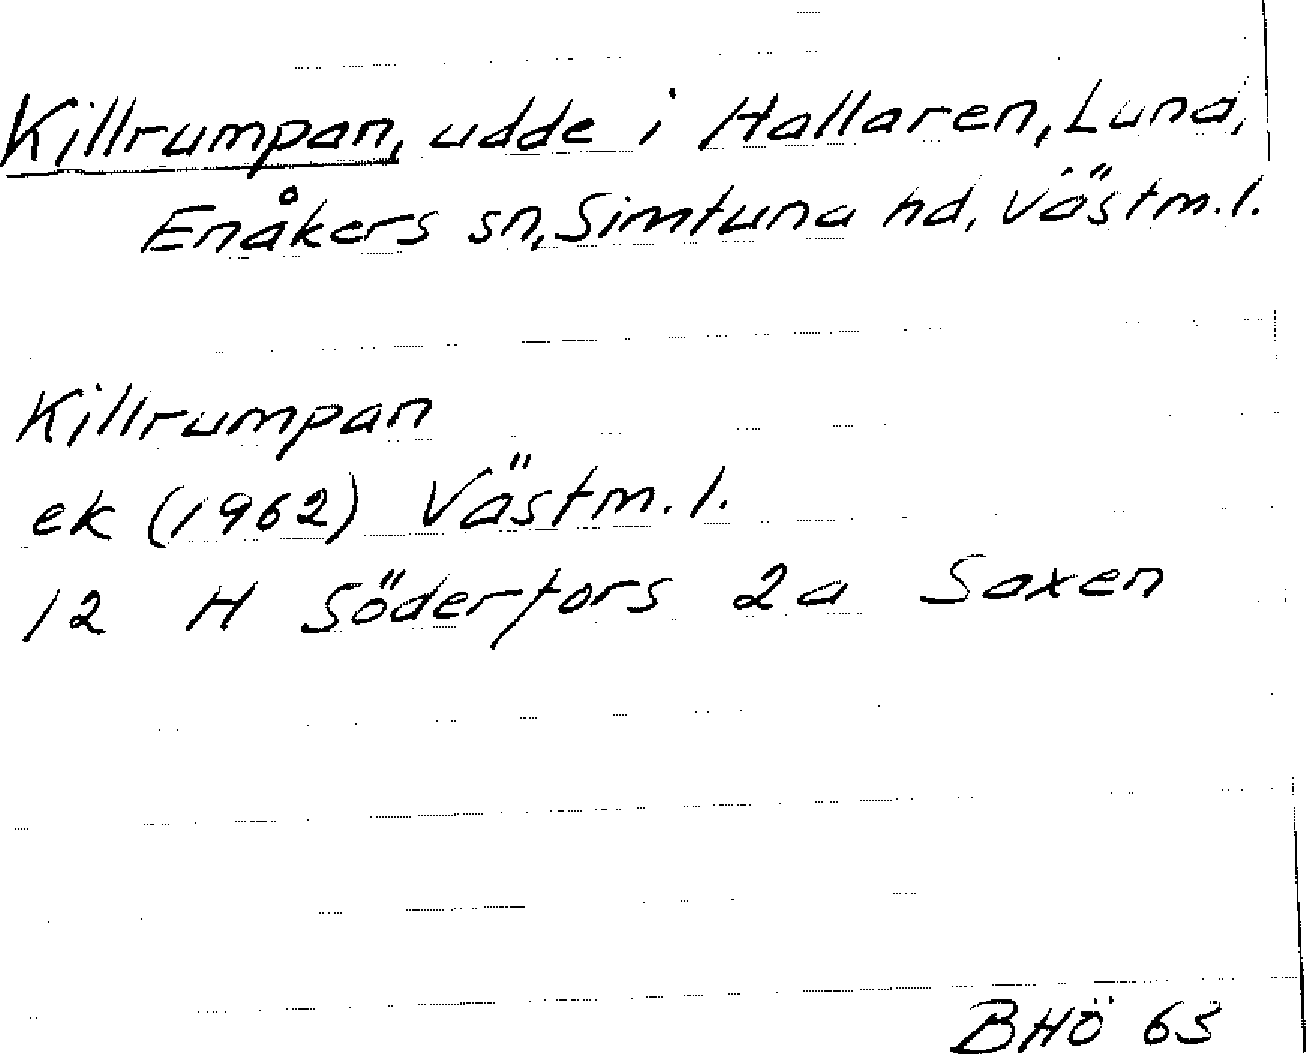 Killrumpan, udde i Hallaren, Luna,
Enåkers sn, Simtuna hd, Västm.l.
Killrumpan
ek (1962) Västm.l.
12 H Söderfors 2a Saxen
BHÖ 63